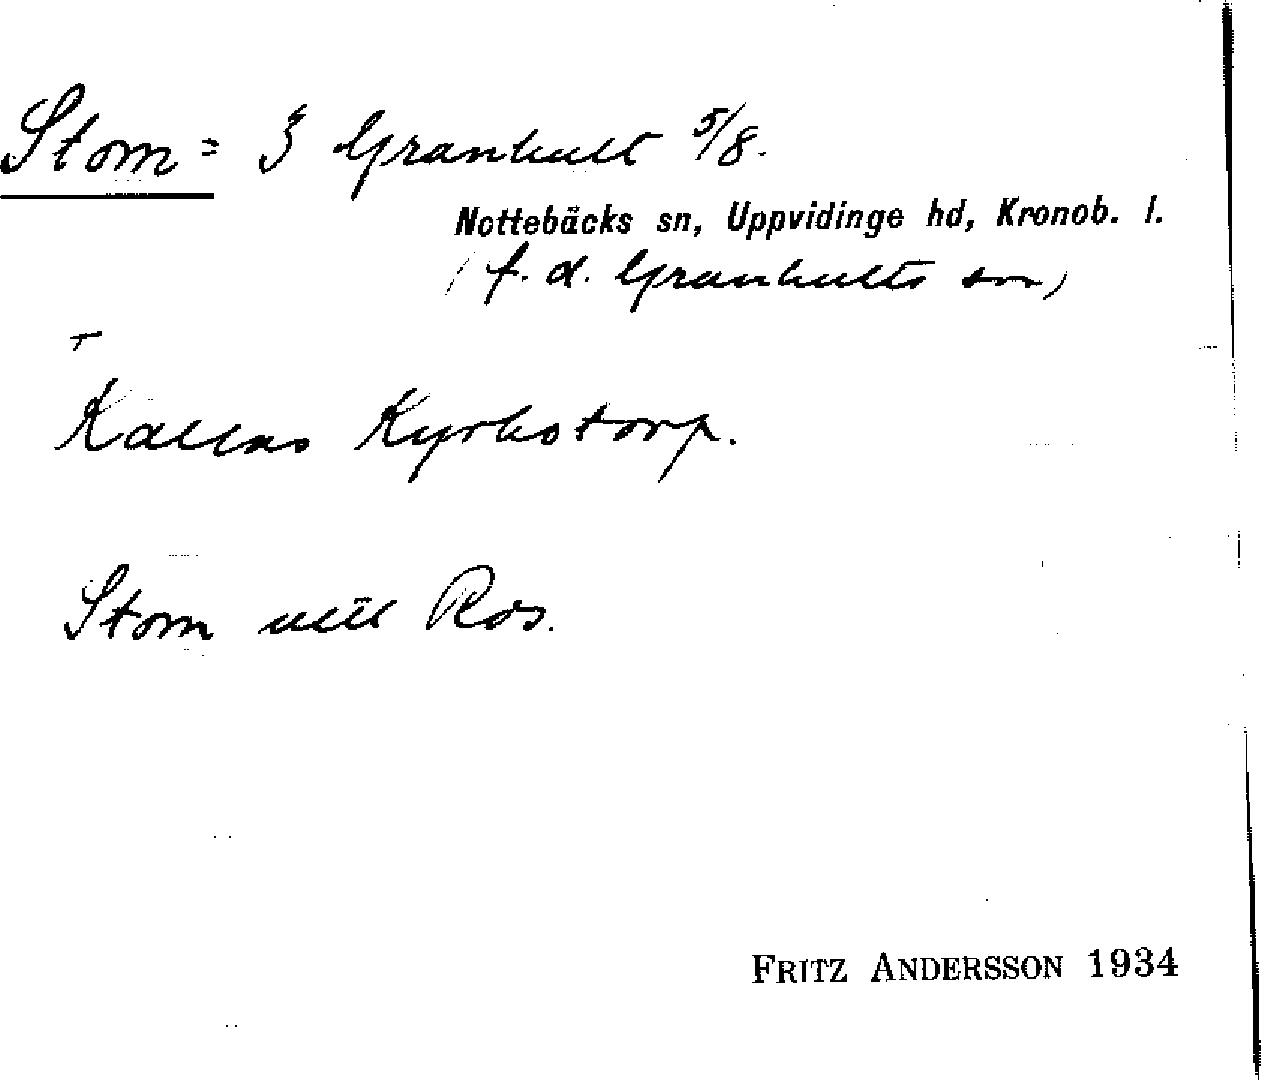 Stom = 3 Granhult 5/8.
Nottebäcks sn, Uppvidinge hd, Kronob. l.
(f. d. Granhults sn)
Kallas Kyrkstorp.
Stom
FRITZ ANDERSSON 1934